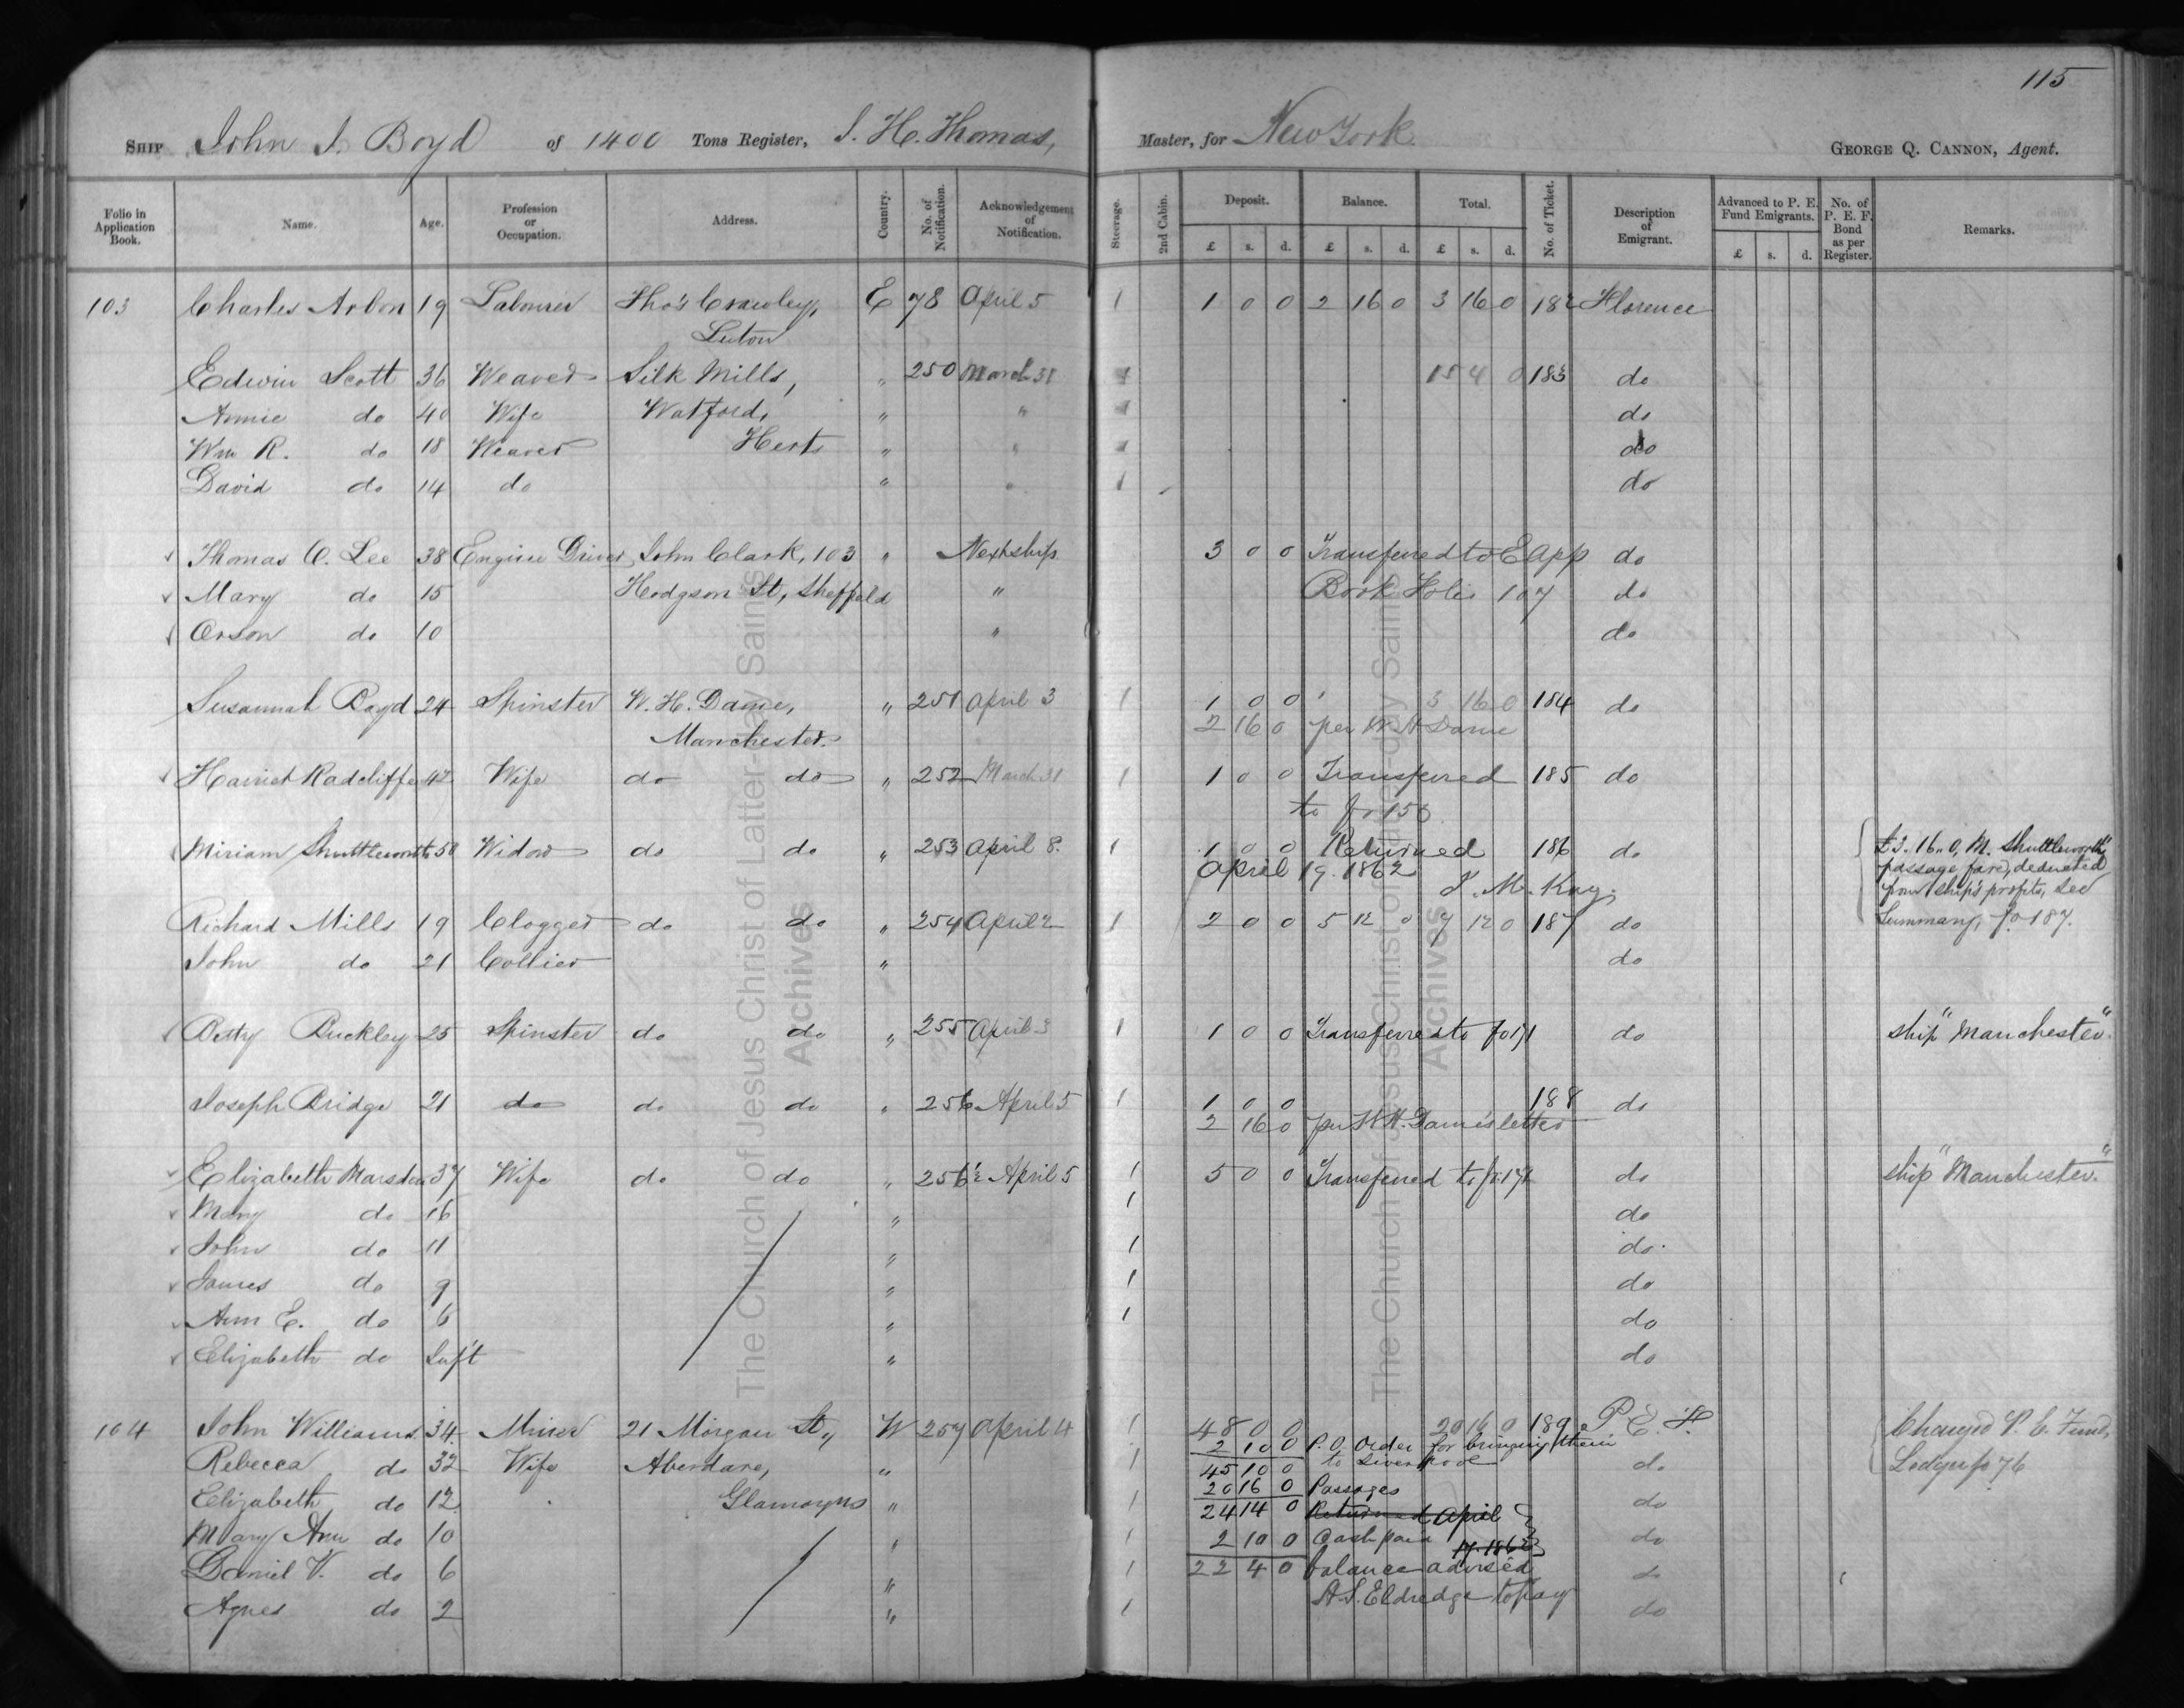 115
SHIP John J. Boyd of 1400 Tons Register, J. H. Thomas, Master, for New York. GEORGE Q. CANNON, Agent.
Folio in Application Book. Name. Age. Profession or Occupation. Address. Country. No. of Notification. Acknowledgement of Notification. Steerage. 2nd Cabin. Deposit. Balance. Total. No. of Ticket. Description of Emigrant. Advanced to P. E. Fund Emigrants. No. of P. E. F. Bond as per Register. Remarks.
£ s. d. £ s. d. £ s. d. £ s. d.
103 Charles Arbon 19 Labourer Tho's Crawley, E 78 April 5 1 1 0 0 2 16 0 3 16 0 182 Florence
Luton
Edwin Scott 36 Weaver Silk Mills, " 250 March 31 1 15 4 0 183 do
Annie do 40 Wife Watford, " " 1 do
Wm R. do 18 Weaver Herts " " 1 do
David do 14 do " " 1 do
Thomas C. Lee 38 Engine Driver John Clark, 103 " Next ship 3 0 0 Transferred to E App do
Mary do 15 Hodgson St, Sheffield " Book Folio 107 do
Orson do 10 " do
Susannah Boyd 24 Spinster W. H. Dame, " 251 April 3 1 1 0 0 3 16 0 184 do
Manchester. 2 16 0 per W. H Dame
Harriet Radcliffe 42 Wife do do " 252 March 31 1 1 0 0 Transferred 185 do
to fo 150
Miriam Shuttleworth 50 Widow do do " 253 April 8. 1 1 0 0 Returned 186 do £3. 16. 0, M. Shuttleworth's
April 19. 1862 J. M. Kay. passage fare, deducted
from ship's profits, see
Richard Mills 19 Clogger do do " 254 April 2 1 2 0 0 5 12 0 7 12 0 187 do Summary, fo 187.
John do 21 Collier " do
Betty Buckley 25 Spinster do do " 255 April 3 1 1 0 0 Transferred to fo 171 do ship "Manchester"
Joseph Bridge 21 do do do " 256 April 5 1 1 0 0 188 do
2 16 0 per W. H. Dame's letter
Elizabeth Marsden 37 Wife do do " 256½ April 5 1 5 0 0 Transferred to fo 171 do ship "Manchester."
Mary do 16 " 1 do
John do 11 " 1 do
James do 9 " 1 do
Ann E. do 6 " 1 do
Elizabeth do Inf't " do
104 John Williams 34 Miner 21 Morgan St., W 257 April 4 1 48 0 0 20 16 0 189 P. E. F. Changed P. E. Fund,
2 10 0 P. O. Order for bringing them
Rebecca do 32 Wife Aberdare, " 1 45 10 0 to Liverpool do Ledger fo 76
20 16 0 Passages
Elizabeth do 12 Glamorgns " 1 24 14 0 Returned April do
Mary Ann do 10 " 1 2 10 0 Cash paid 17. 1862 do
Daniel V. do 6 " 1 22 4 0 balance advised do
Agnes do 2 " 1 H. S. Eldredge to pay do
The Church of Jesus Christ of Latter-day Saints
Archives
The Church of Jesus Christ of Latter-day Saints
Archives